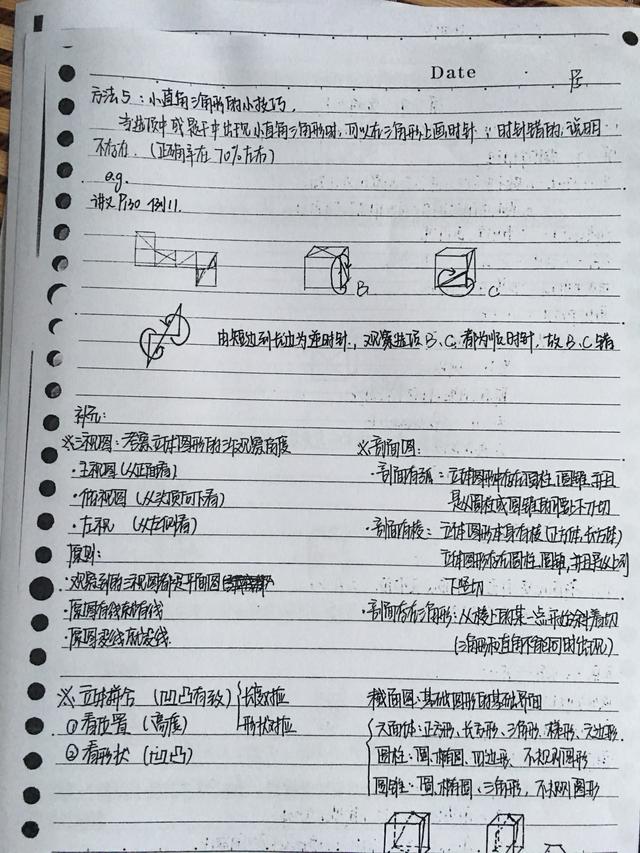 Date
方法5:小直角三角形的小技巧.
当选项中或题干中出现小直角三角形时,可以在三角形上画时针,时针错的,说明
不存在.(正确率在70%左右)
e.g.
讲义P130 例11.
B
C
由短边到长边为逆时针,观察选项B、C,都为顺时针,故B、C错
补充:
※三视图:考察立体图形的三个观察角度
·主视图(从正面看)
·俯视图(从头顶向下看)
·左视(从左侧看)
原则:
·观察到的三视图都是平面图
·原图有线就有线
·原图没线就没线
※剖面图:
·剖面有弧:立体图形中存在圆柱、圆锥,并且
是从圆柱或圆锥的
·剖面有棱:立体图形本身有棱(正方体、长方体)
立体图形存在圆柱、圆锥,并且是从上到
下竖切
·剖面存在三角形:从棱上的某一点开始斜着切
(三角形和直角不能同时出现)
※立体拼合(凹凸有致) 长度对应
形状对应
①看位置(高度)
②看形状(凹凸)
截面图:基础图形的基础界面
六面体:正方形、长方形、三角形、梯形、六边形.
圆柱:圆、椭圆、四边形、不规则图形
圆锥:圆、椭圆、三角形,不规则图形